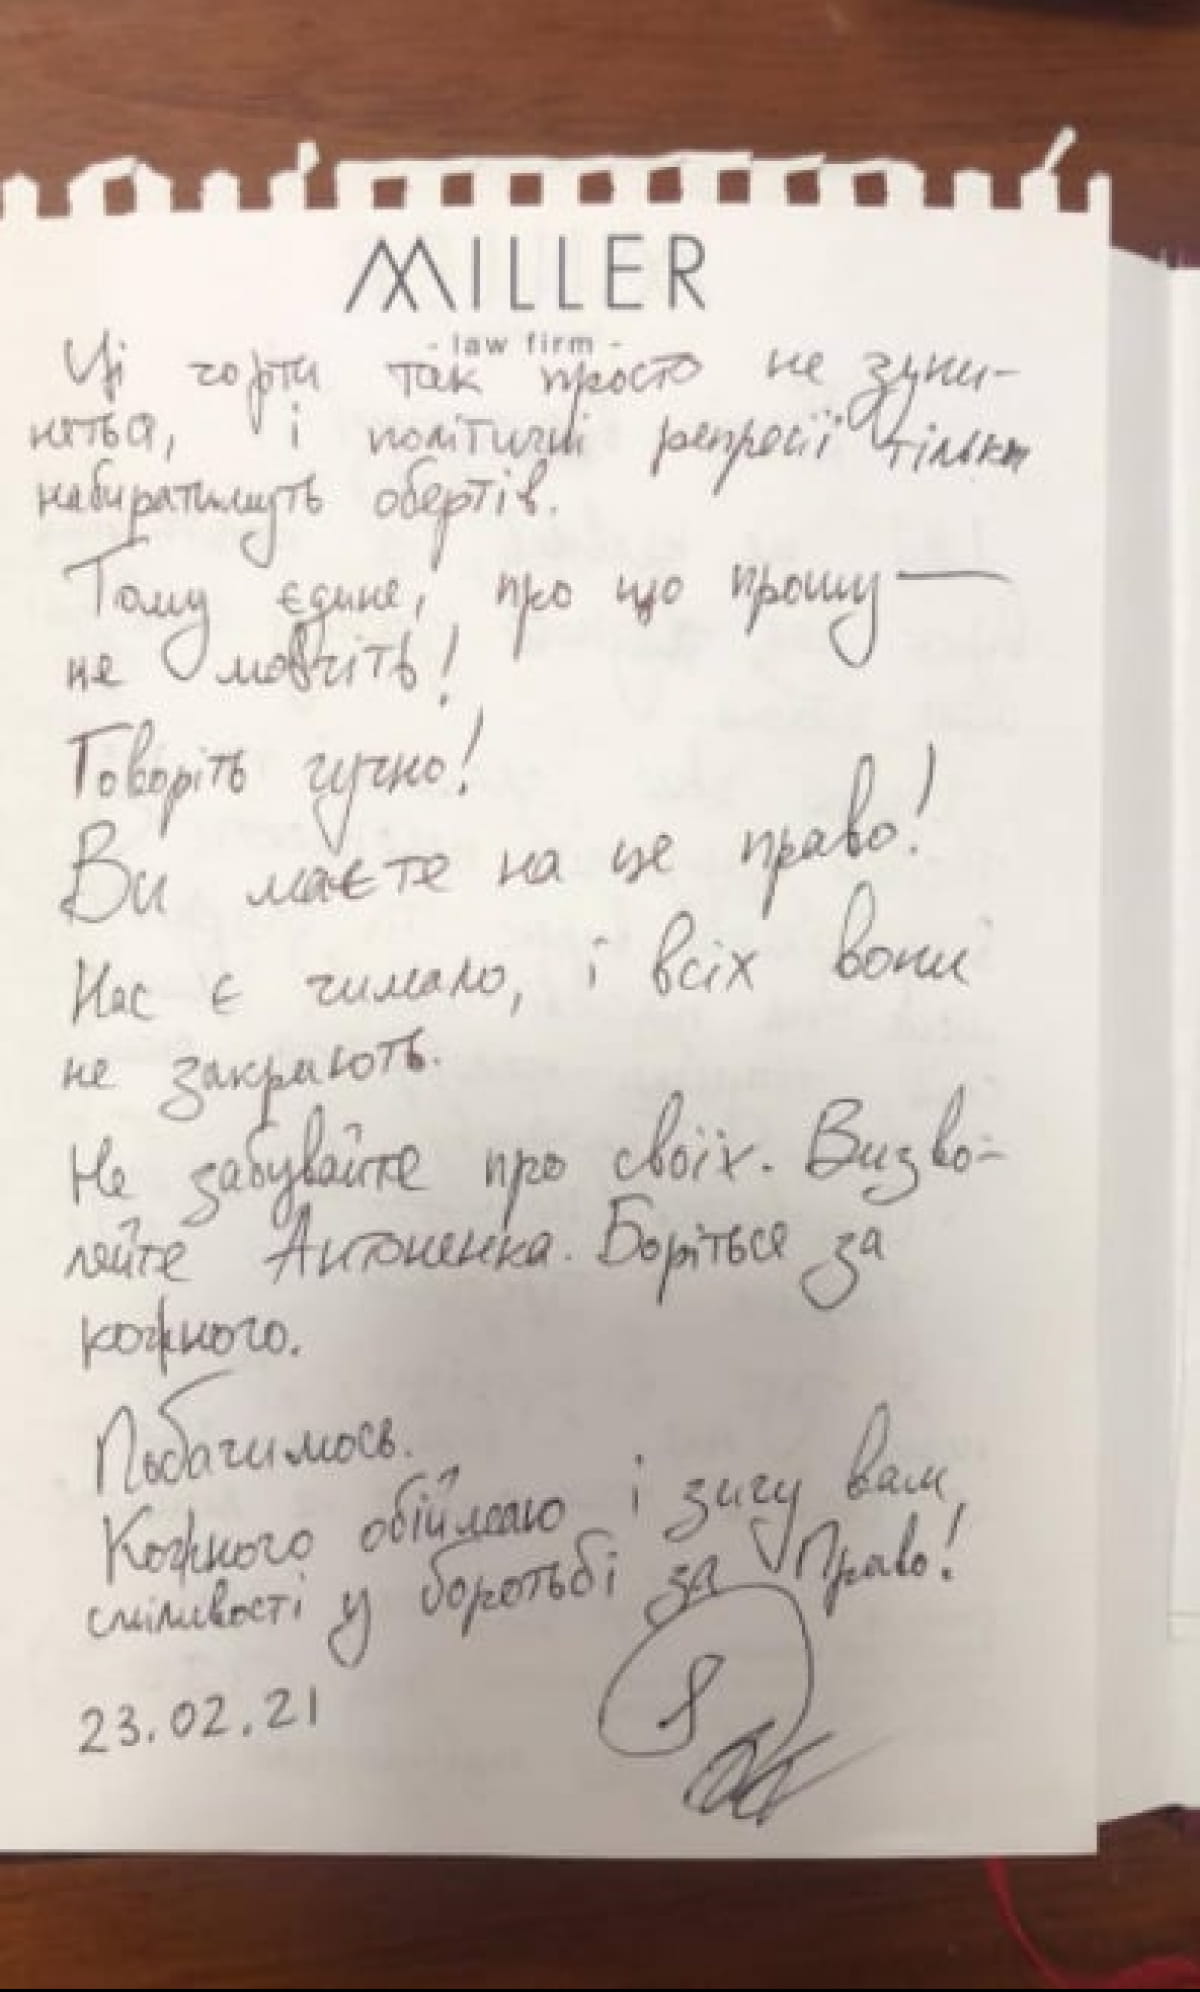 MILLER
- law firm -
Ці чорти так просто не зупи-
няться, і політичні репресії тільки
набиратимуть обертів.
Тому єдине, про що прошу —
не мовчіть!
Говоріть гучно!
Ви маєте на це право!
Нас є чимало, і всіх вони
не закриють.
Не забувайте про своїх. Визво-
ляйте Антоненка. Боріться за
кожного.
Побачимось.
Кожного обіймаю і зичу вам
сміливості у боротьбі за Право!
23.02.21